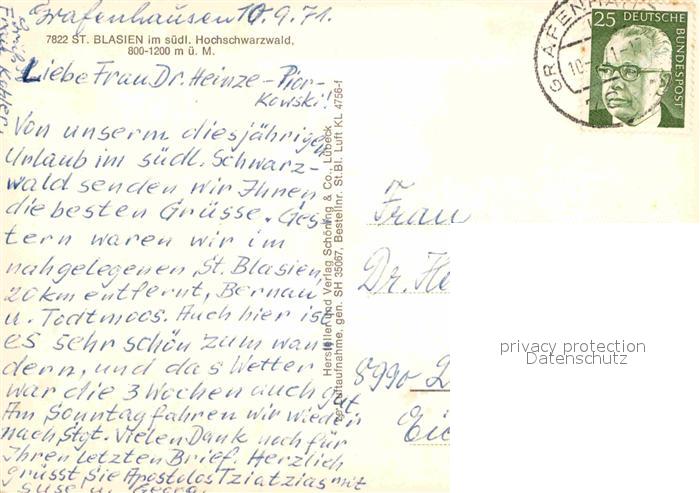 Grafenhausen 10.9.71.
7822 ST. BLASIEN im südl. Hochschwarzwald,
800-1200 m ü. M.
Liebe Frau Dr. Heinze-Pior-
kowski!
Von unserm diesjährigen
Urlaub im südl. Schwarz-
wald senden wir Ihnen
die besten Grüsse. Ges-
tern waren wir im
nahgelegenen St. Blasien,
20 km entfernt, Bernau
u. Todtmoos. Auch hier ist
es sehr schön zum wan-
dern, und das Wetter
war die 3 Wochen auch gut
Am Sonntag fahren wir wieder
nach Stgt. Vielen Dank noch für
Ihren letzten Brief. Herzlich
grüsst Sie Apostolos Tziatzias mit
Suse u. Georg
Hersteller und Verlag Schöning & Co., Lübeck
Luftaufnahme, gen. SH 35067, Bestellnr. St.Bl. Luft KL 4756-f
GRAFENHA
25 DEUTSCHE
BUNDESPOST
Frau
Dr. He
8990
privacy protection
Datenschutz